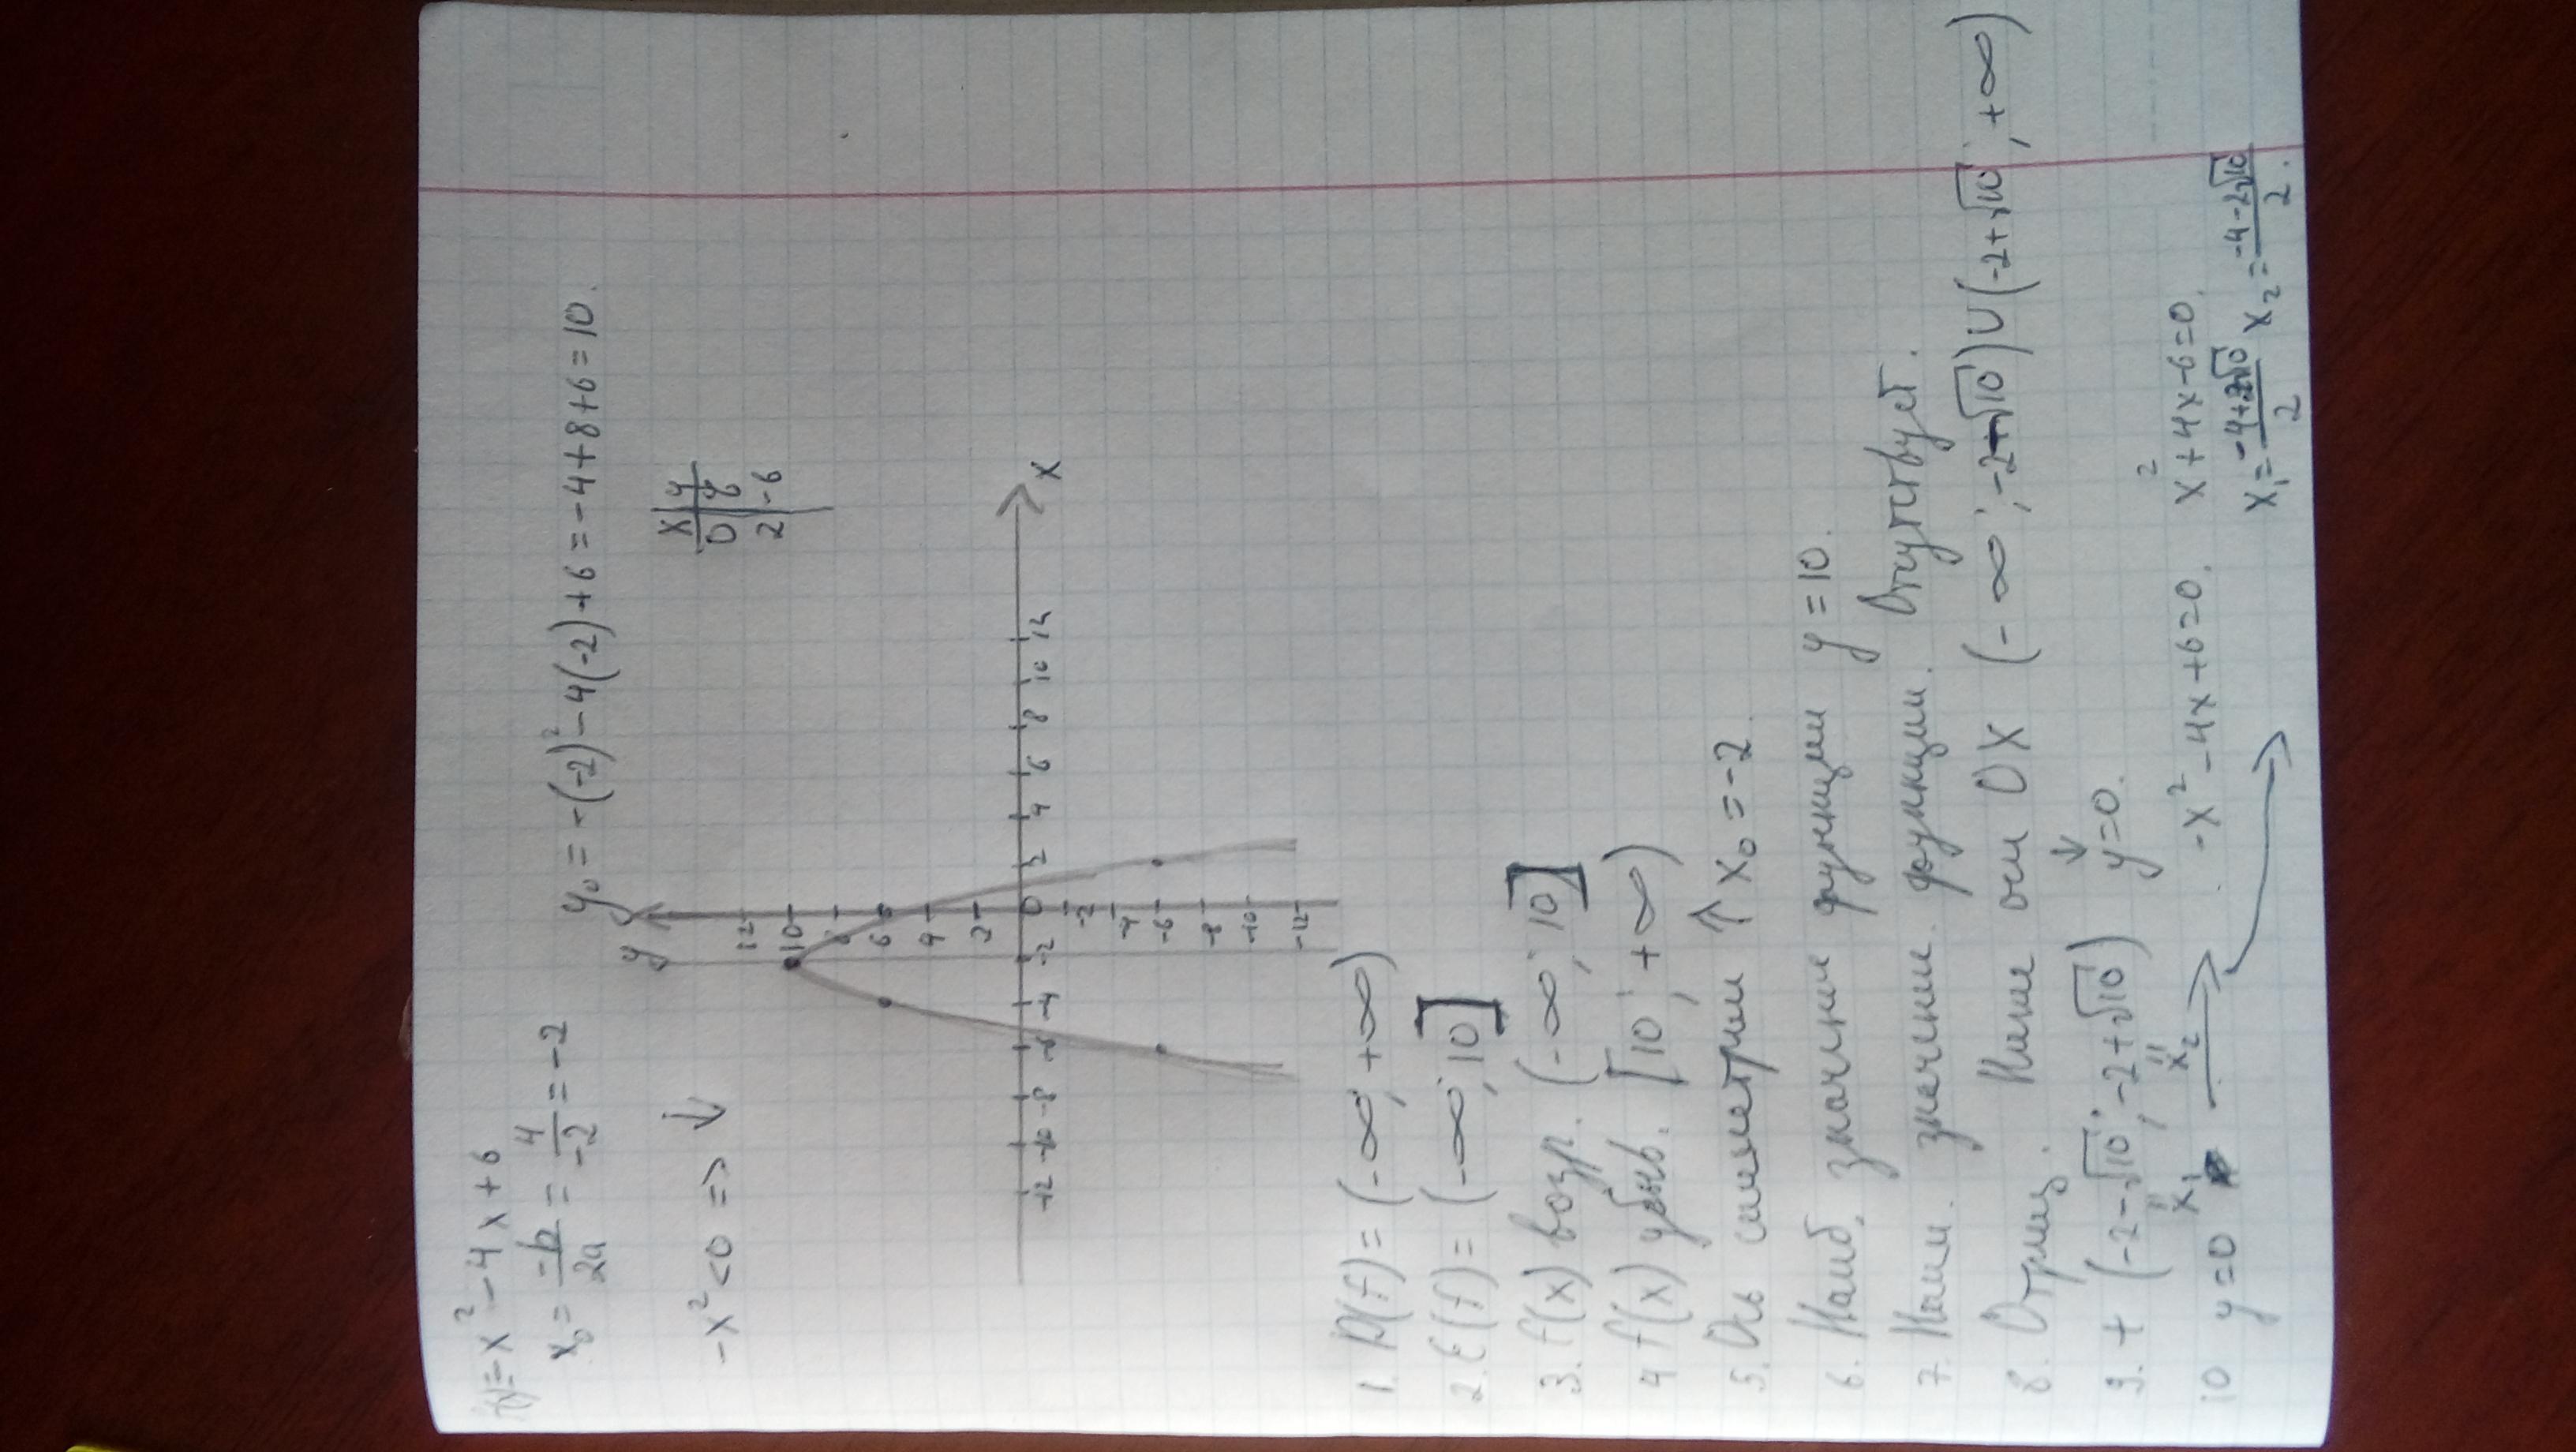 f(x)=-x² - 4x + 6
x₀ = -b/2a = 4/-2 = -2 y₀ = -(-2)² - 4(-2) + 6 = -4 + 8 + 6 = 10.
-x² < 0 => ↓
x | y
0 | 6
2 | -6
y
12
10
8
6
4
2
-12 -10 -8 -6 -4 -2 0 2 4 6 8 10 12 x
-2
-4
-6
-8
-10
-12
1. D(f) = (-∞; +∞)
2. E(f) = (-∞; 10]
3. f(x) возр. (-∞; 10]
4 f(x) убыв. [10; +∞)
5. Ось симметрии ↑ x₀ = -2.
6. Наиб. значение функции y = 10.
7. Наим. значение функции. Отутствует.
8. Отриц. Ниже оси OX (-∞; -2-√10) ∪ (-2+√10; +∞)
9. + (-2-√10; -2+√10) y=0.
x₁ x₂
10 y=0 -x² - 4x + 6 = 0. x² + 4x - 6 = 0.
x₁ = -4+2√10/2 x₂ = -4-2√10/2.